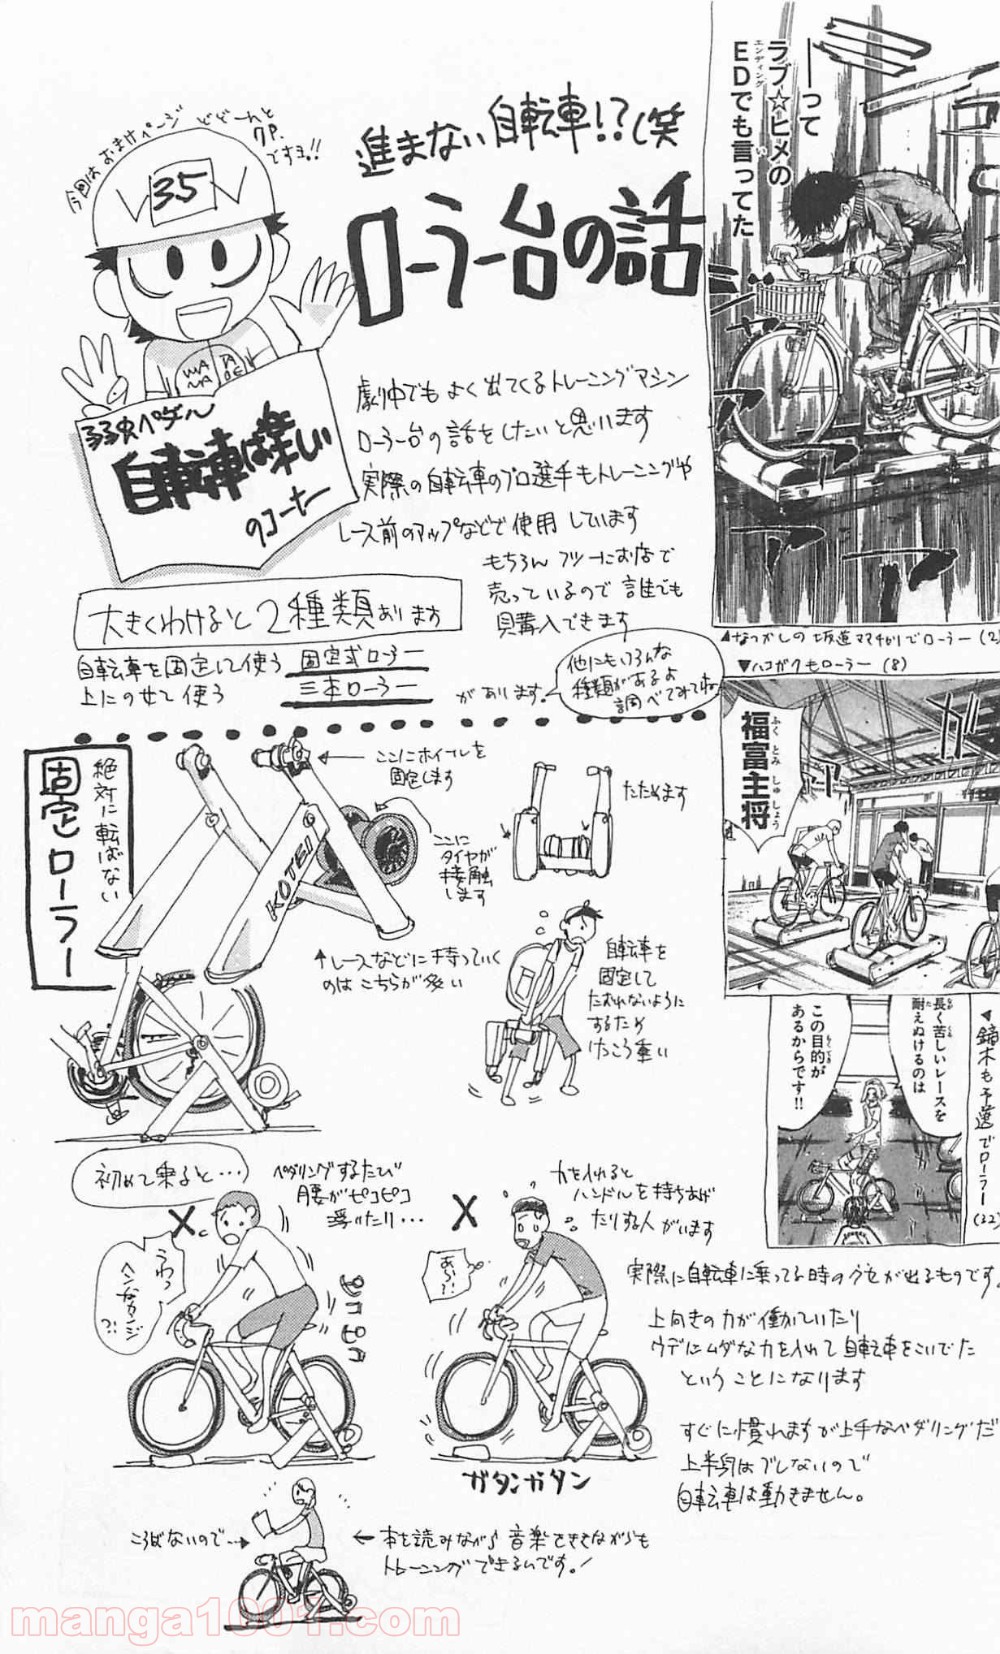 今回はおまけページ どどーんと
7P.
ですョ!!
35
進まない自転車!?(笑
ローラー台の話
弱虫ペダル
自転車は楽しい
のコーナー
劇中でもよく出てくるトレーニングマシン
ローラー台の話をしたいと思います
実際の自転車のプロ選手もトレーニングや
レース前のアップなどで使用しています
もちろんフツーにお店で
売っているので誰でも
購入できます
大きくわけると2種類あります
自転車を固定して使う 固定式ローラー
上にのせて使う 三本ローラー
があります。
他にもいろんな
種類があるよ
調べてみてね
――って
ラブ☆ヒメの
EDでも言ってた
エンディング
い
▲なつかしの坂道ママチャリでローラー(2)
▼ハコガクもローラー(8)
福富主将
ふくとみしゅしょう
長く苦しいレースを
耐えぬけるのは
この目的が
あるからです!!
◀鏑木も予選でローラー(32)
絶対に転ばない
固定ローラー
ここにホイールを
固定します
KOTEI
ここに
タイヤが
接触
します
たためます
↑レースなどに持っていく
のはこちらが多い
自転車を
固定して
たおれないように
するため
けっこう重い
初めて乗ると…
ペダリングするたび
腰がピコピコ
浮いたり…
×
うわっ
ヘンなカンジ
?!
ピコピコ
力を入れると
ハンドルを持ちあげ
たりする人がいます
×
あら?!
ガタンガタン
実際に自転車に乗ってる時のクセが出るものです。
上向きの力が働いていたり
ウデにムダな力を入れて自転車をこいでた
ということになります
すぐに慣れますが上手なペダリングだ
上半身はブレないので
自転車は動きません。
ころばないので…→
←本を読みながら音楽をききながらも
トレーニングできるんです!
manga1001.com